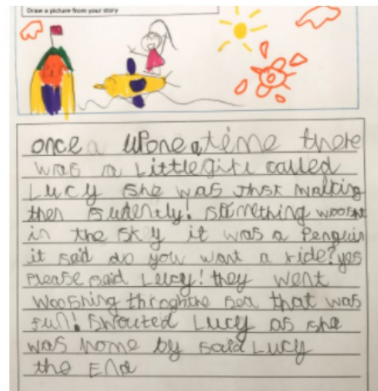 Draw a picture from your story
once a upone a time there
was a little girl called
Lucy she was Just walking
then sudently! something woosht
in the sky it was a Penguin
it said do you want a ride? yes
Please said Lucy! they went
wooshing throghthe sea that was
fun! showted Lucy as she
was home by said Lucy
the End